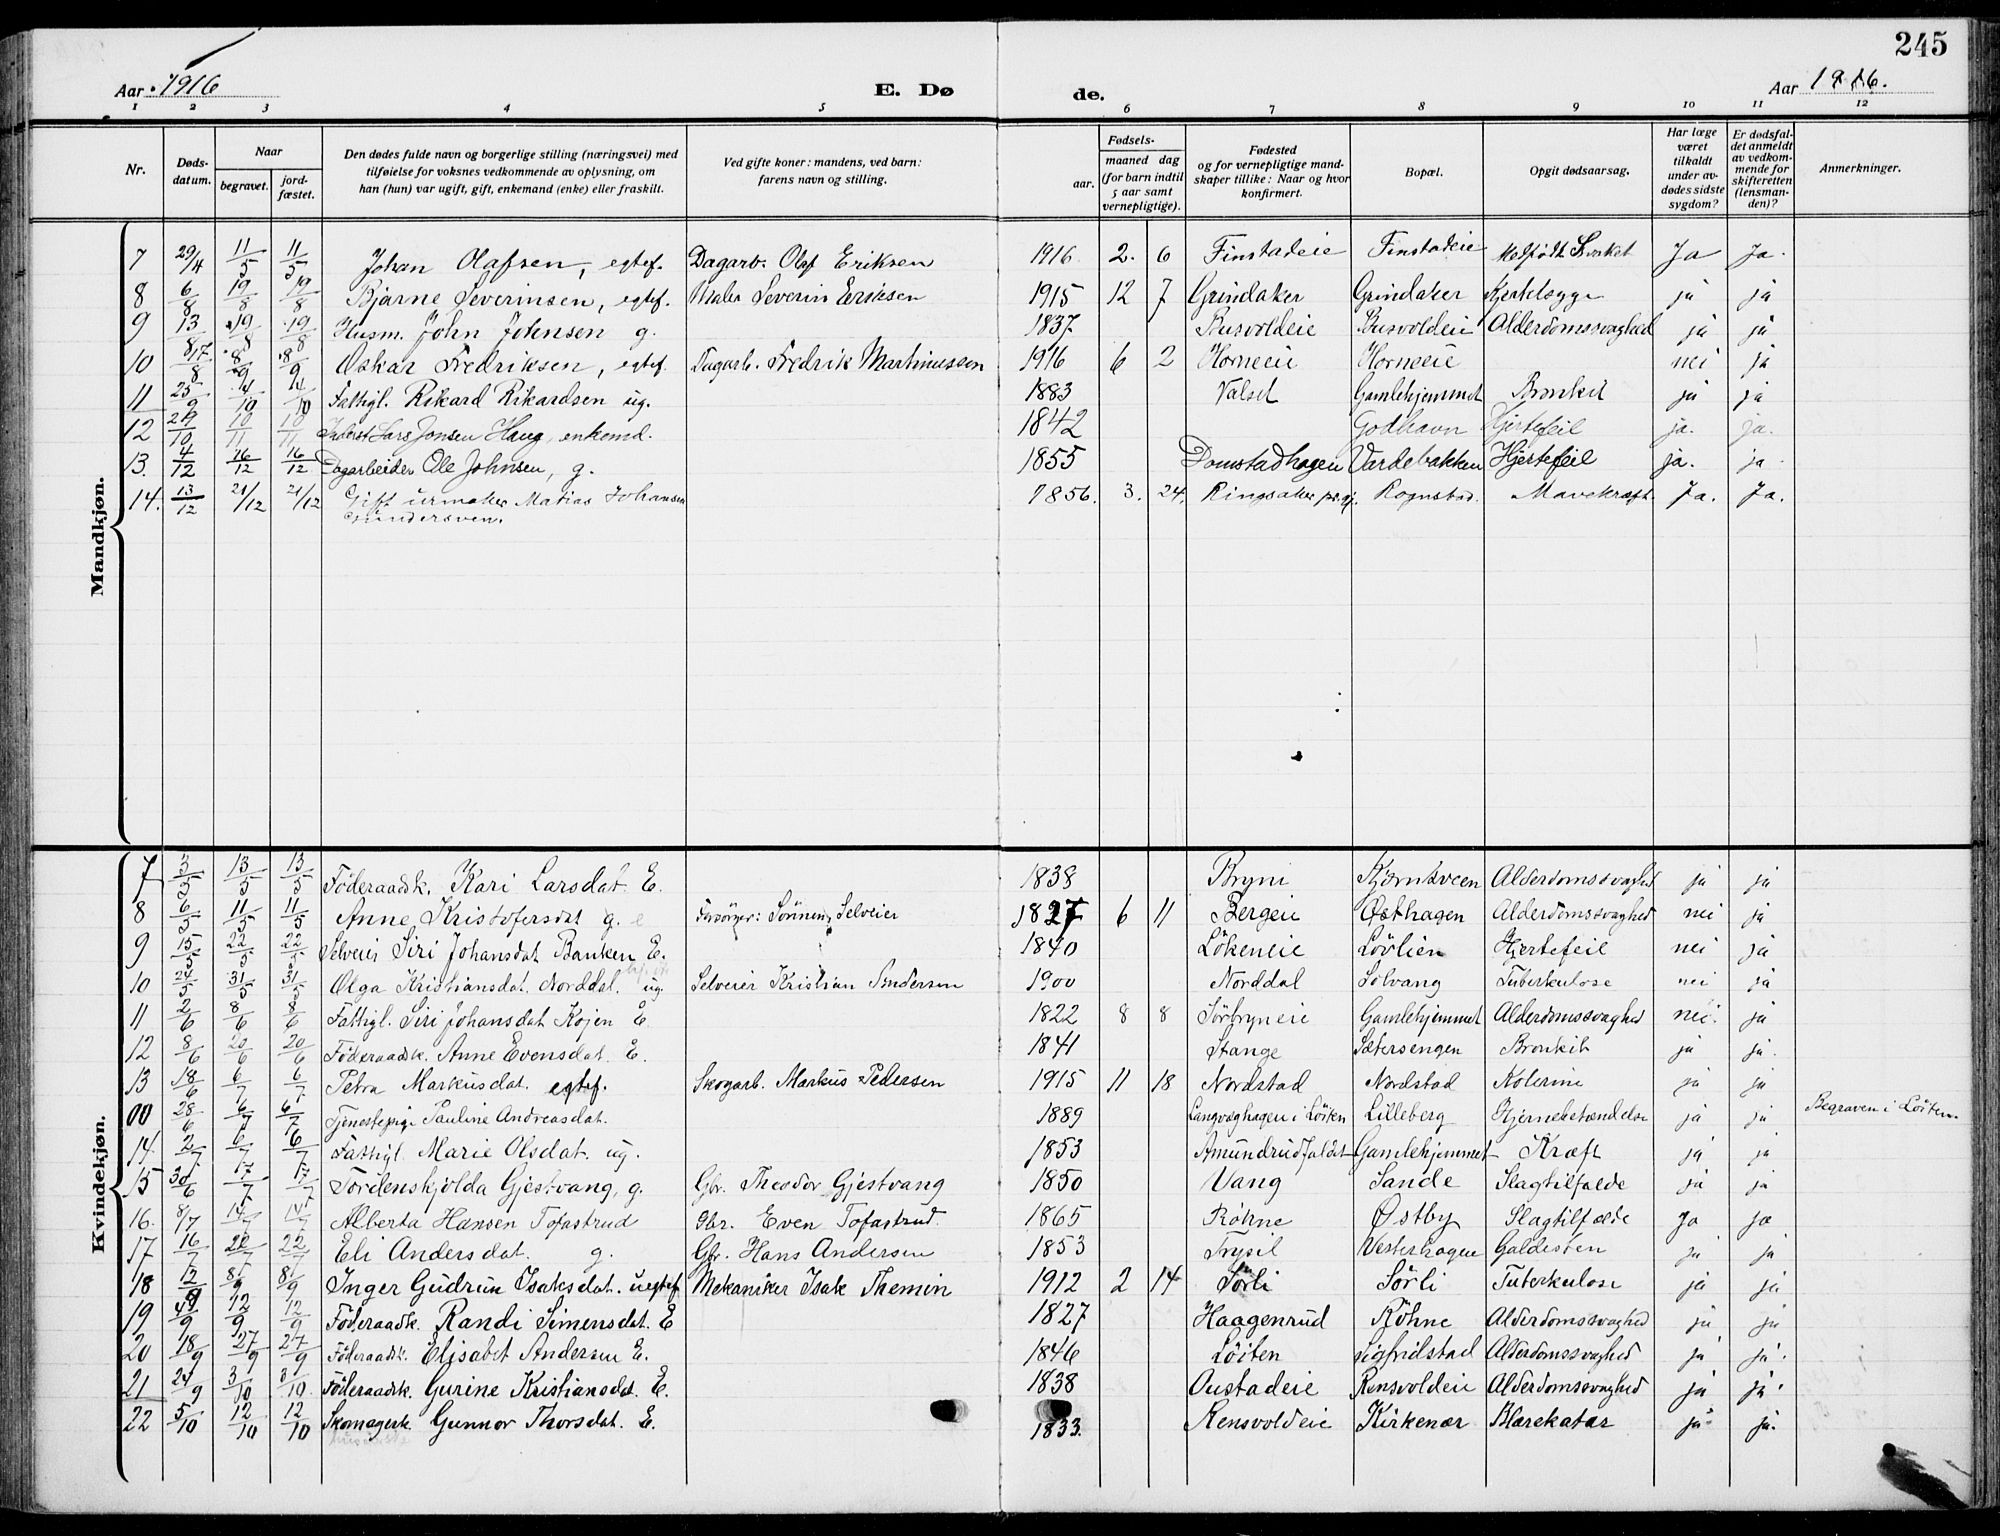 245
Aar 1916 E. Dø de. Aar 1916.
1 2 3 4 5 6 7 8 9 10 11 12
Nr. Døds-datum. Naar begravet. jord-fæstet. Den dødes fulde navn og borgerlige stilling (næringsvei) med tilføielse for voksnes vedkommende av oplysning, om han (hun) var ugift, gift, enkemand (enke) eller fraskilt. Ved gifte koner: mandens, ved barn: farens navn og stilling. Fødsels- aar. maaned dag (for barn indtil 5 aar samt vernepligtige). Fødested og for vernepligtige mand-skaper tillike: Naar og hvor konfirmert. Bopæl. Opgit dødsaarsag. Har læge været tilkaldt under av-dødes sidste sygdom? Er dødsfal-det anmeldt av vedkom-mende for skifteretten (lensman-den)? Anmerkninger.
Mandkjøn.
7 29/4 11/5 11/5 Johan Olafsen, egtef. Dagarb. Olaf Eriksen 1916 2. 6 Finstadeie Finstadeie Medfödt Ja Ja.
8 6/8 19/8 19/8 Bjarne Severinsen, egtef. Maler Severin Eriksen 1915 12 7 Grindaker Grindaker Kjertelsyge ja ja
9 13/8 19/8 19/8 Husm. John Johnsen g. 1837 Busvoldeie Busvoldeie Alderdomssvaghed ja ja
10 17/8 8/9 8/9 Oskar Fredriksen, egtef. Dagarb. Fredrik Martinussen 1916 6 2 Horneeie Horneeie nei ja
11 25/9 14/10 14/10 Fattigl. Rikard Rikardsen ug. 1883 Valset Gamlehjemmet Bronkit ja ja
12 29/10 10/11 10/11 Inderst Lars Jonsen Haug, enkemd. 1842 Godhavn Hjertefeil ja. ja.
13. 4/12 16/12 16/12 Dagarbeider Ole Johnsen, g. 1855 Domstadhagen Vardebakken Hjertefeil ja. ja
14. 13/12 21/12 21/12 Gift urmaker Matias Johansen Gundersven. 1856. 3. 24. Ringsaker Rognstad. Mavekræft. Ja. Ja.
Kvindekjøn.
7 3/5 13/5 13/5 Föderaadk. Kari Larsdat. E. 1838 Bryni Kjernsveen Alderdomssvaghed ja ja
8 6/5 11/5 11/5 Anne Kristofersdat g. Forsörger: Sönnen, Selveier 1827 6 11 Bergeie Østhagen Alderdomssvaghed nei ja
9 15/5 22/5 22/5 Selveier Siri Johansdat Banken E. 1840 Lökeneie Lövlien Hjertefeil nei ja
10 24/5 31/5 31/5 Olga Kristiansdat. Norddal. ug. Selveier Kristian Andersen 1900 Norddal Solvang Tuberkulose nei ja
11 2/6 8/6 8/6 Fattigl. Siri Johansdat Kojen E. 1822 8 8 Sörbryneie Gamlehjemmet Alderdomssvaghed nei. ja
12 8/6 20/6 20/6 Föderaadk. Anne Evensdat. E. 1841 Stange Sætersengen Bronkit ja ja.
13 18/6 6/7 6/7 Petra Markusdat. egtef. Skogarb. Markus Pedersen 1915 11 18 Nordstad Nordstad Kolerine ja ja
00 28/6 6/7 6/7 Tjenestepige Pauline Andreasdat. 1889 Langvaghagen i Löiten Lilleberg Hjernebetændelse ja ja Begraven i Löiten.
14. 2/7 6/7 6/7 Fattigl. Marie Olsdat. ug. 1853 Amundrudfaldet Gamlehjemmet Kræft ja ja
15 30/6 17/7 17/7 Tordenskjolda Gjestvang, g. Gbr. Theodor Gjestvang 1850 Vang Sande Slagtilfælde ja ja
16. 8/7 14/7 14/7 Alberta Hansen Tofastrud Gbr. Even Tofastrud. 1865 Röhne Østby Slagtilfælde Ja ja
17 16/7 22/7 22/7 Eli Andersdat. g. Gbr. Hans Andersen 1853 Trysil Vesterhagen Galdesten ja ja
18 8/9 8/9 Inger Gudrun Isaksdat. uegtef Mekaniker Isak Themin 1912 2 14 Sörli Sörli Tuberkulose ja ja
19 12/9 12/9 Föderaadk. Randi Simensdat. E 1827 Haagenrud Röhne Alderdomssvaghed ja ja
20 18/9 27/9 27/9 Föderaadk. Elisabet Andersen E. 1846 Löiten Sigfridstad Alderdomssvaghed ja ja.
21 24/9 3/10 Föderaadk. Gurine Kristiansdat. E. 1838 Oustadeie Rensvoldeie Alderdomssvaghed ja ja.
22 5/10 12/10 12/10 Skomagerk. Gunnor Thorsdat. E. 1833. Rensvoldeie Kirkenær Blærekatar ja ja.